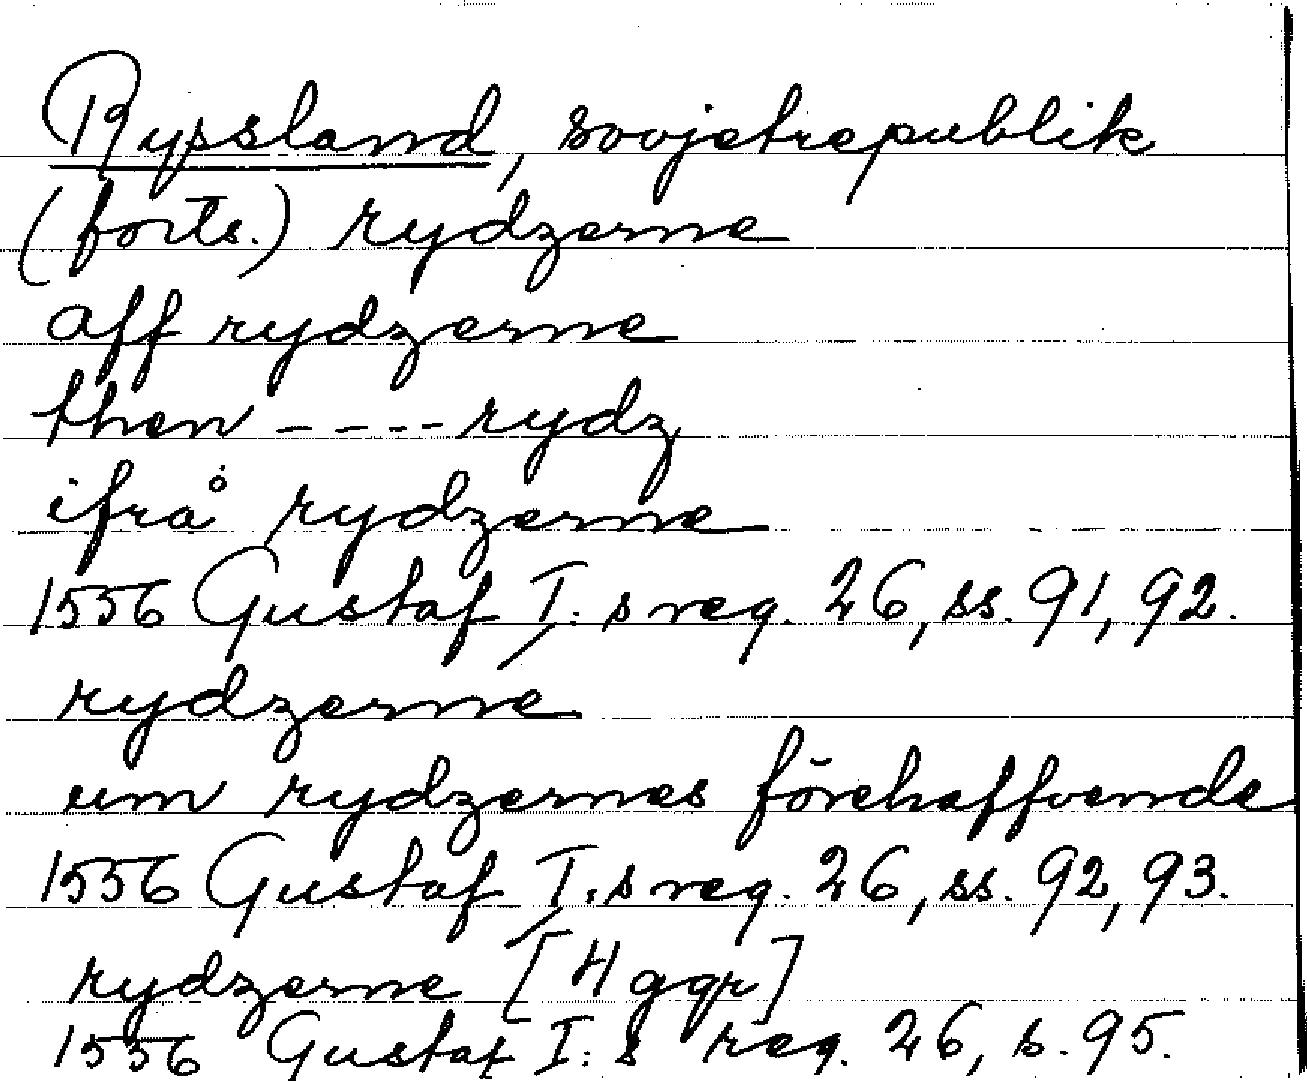 Ryssland, sovjetrepublik
(forts.) rydzerne
aff rydzerne
then ---- rydz
ifrå rydzerne
1556 Gustaf I:s reg. 26, ss. 91, 92.
rydzerne
um rydzernes förehaffvende
1556 Gustaf I:s reg. 26, ss. 92, 93.
rydzerne [4 ggr]
1556 Gustaf I:s reg. 26, s. 95.